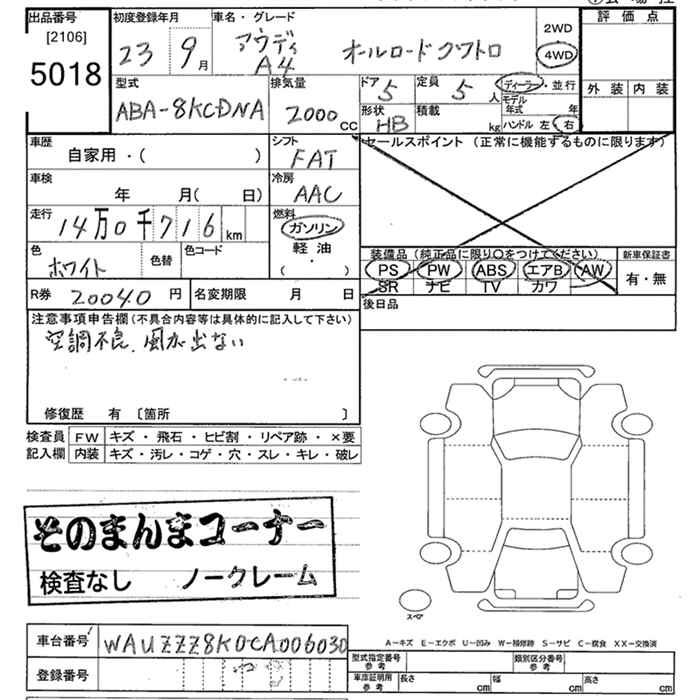 出品番号 初度登録年月 車名・グレード 評価点
[2106] 23 9月 アウディ A4 オールロードクワトロ 2WD 4WD
5018
型式 排気量 ドア 5 定員 5人 ディーラー・並行 外装 内装
ABA-8KCDNA 2000cc 形状 HB 積載 kg モデル年式 年
ハンドル 左 右
車歴 シフト セールスポイント (正常に機能するものに限ります)
自家用・( ) FAT
車検 冷房
年 月( 日) AAC
走行 燃料
14万0千716km ガソリン
色 色替 色コード 軽油 装備品(純正品に限り○をつけてください) 新車保証書
ホワイト (・) PS PW ABS エアB AW 有・無
SR ナビ TV カワ
R券 20040円 名変期限 月 日 後日品
注意事項申告欄(不具合内容等は具体的に記入して下さい)
空調不良、風が出ない
修復歴 有 〔箇所 〕
検査員 FW キズ・飛石・ヒビ割・リペア跡・×要
記入欄 内装 キズ・汚レ・コゲ・穴・スレ・キレ・破レ
そのまんまコーナー
検査なし ノークレーム
スペア
A−キズ E−エクボ U−凹み W−補修跡 S−サビ C−腐食 XX−交換済
車台番号 WAUZZZ8K0CA006030
型式指定番号 参考 類別区分番号 参考
登録番号
車庫証明用 参考 長さ cm 幅 cm 高さ cm